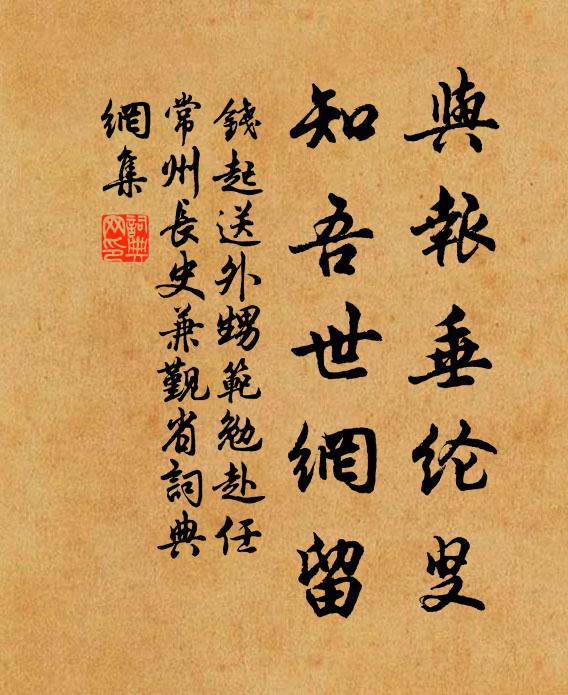 與報垂纶叟
知吾世網留
錢起送外甥範勉赴任
常州長史兼覲省詞典
網集
詞典網印